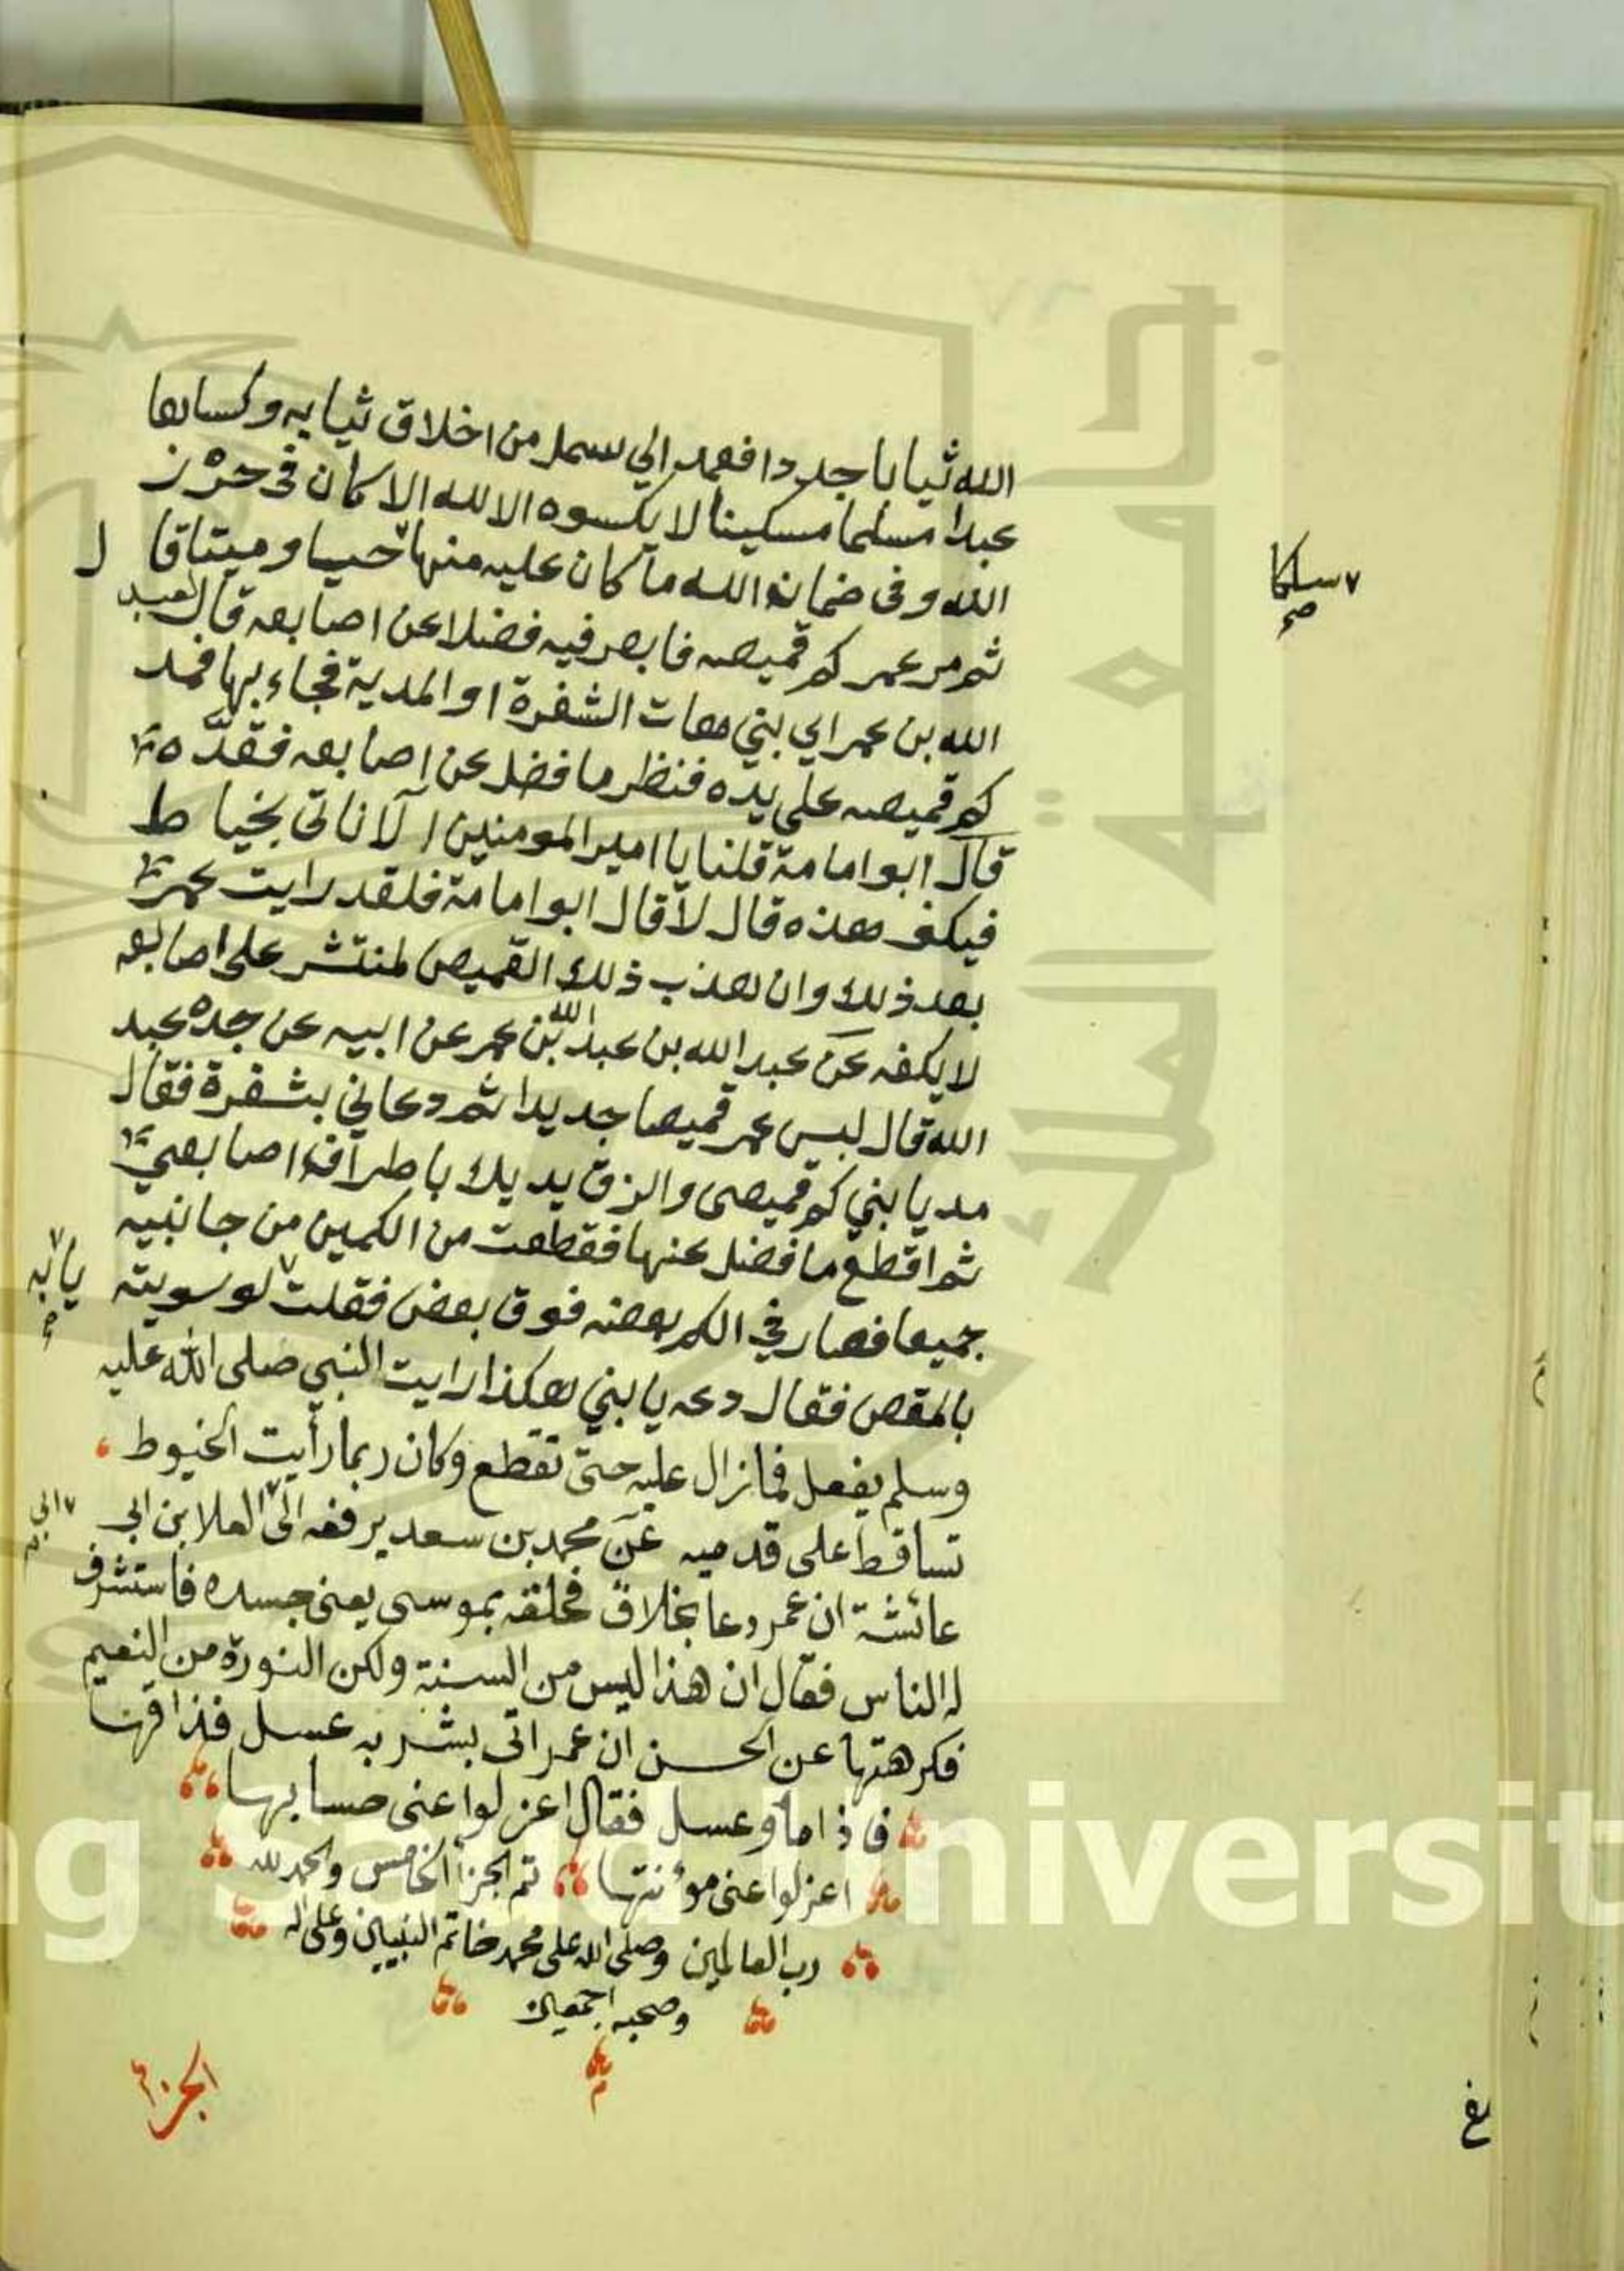 الله ثيابا جددا فعمد الي سمل من اخلاق ثيابه وكساها
عبدا مسلما مسكينا لا يكسوه الا لله الا كان في حرز
الله وفي ضمان الله ما كان عليه منها حيا وميتا قال
ثم مر عمر كم قميصه فابصر فيه فضلا عن اصابعه قال لعبد
الله بن عمر اي بني هات الشفرة او المدية فجاء بها فمد
كم قميصه على يده فنظر ما فضل عن اصابعه فقده
قال ابو امامة قلنا يا امير المومنين الا ناتي بخياط
فيكف هذه قال لا قال ابو امامة فلقد رايت عمر
بعد ذلك وان هذب ذلك القميص لمنتشر على اصابعه
لا يكفه عن عبد الله بن عبد الله بن عمر عن ابيه عن جده عبد
الله قال لبس عمر قميصا جديدا ثم دعاني بشفرة فقال
مد يا بني كم قميصي والزق يديك باطراف اصابعي
ثم اقطع ما فضل عنها فقطعت من الكمين من جانبيه
جميعا فصار في الكم بعضه فوق بعض فقلت لو سويته
بالمقص فقال دعه يا بني هكذا رايت النبي صلى الله عليه
وسلم يفعل فما زال عليه حتى تقطع وكان ربما رأيت الخيوط
تساقط على قدميه عن محمد بن سعد يرفعه الى العلا بن ابي
عائشة ان عمر دعا بخلاق فحلقه بموسى يعنى جسده فاستشرف
له الناس فقال ان هذا ليس من السنة ولكن النورة من النعيم
فكرهتها عن الحسن ان عمر اتى بشربه عسل فذاقها
فاذا ما وعسل فقال اعزلوا عنى حسابها
اعزلوا عنى موئنتها تم الجزأ الخامس والحمد لله
رب العالمين وصلى الله على محمد خاتم النبيين وعلى اله
وصحبه اجمعين
الجز
سلكا
صح
يا ابه
صح
الى
King Saud University
جامعة الملك